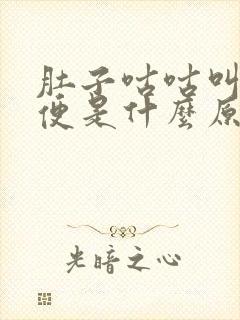 肚子咕咕叫
便是什麼原
光暗之心